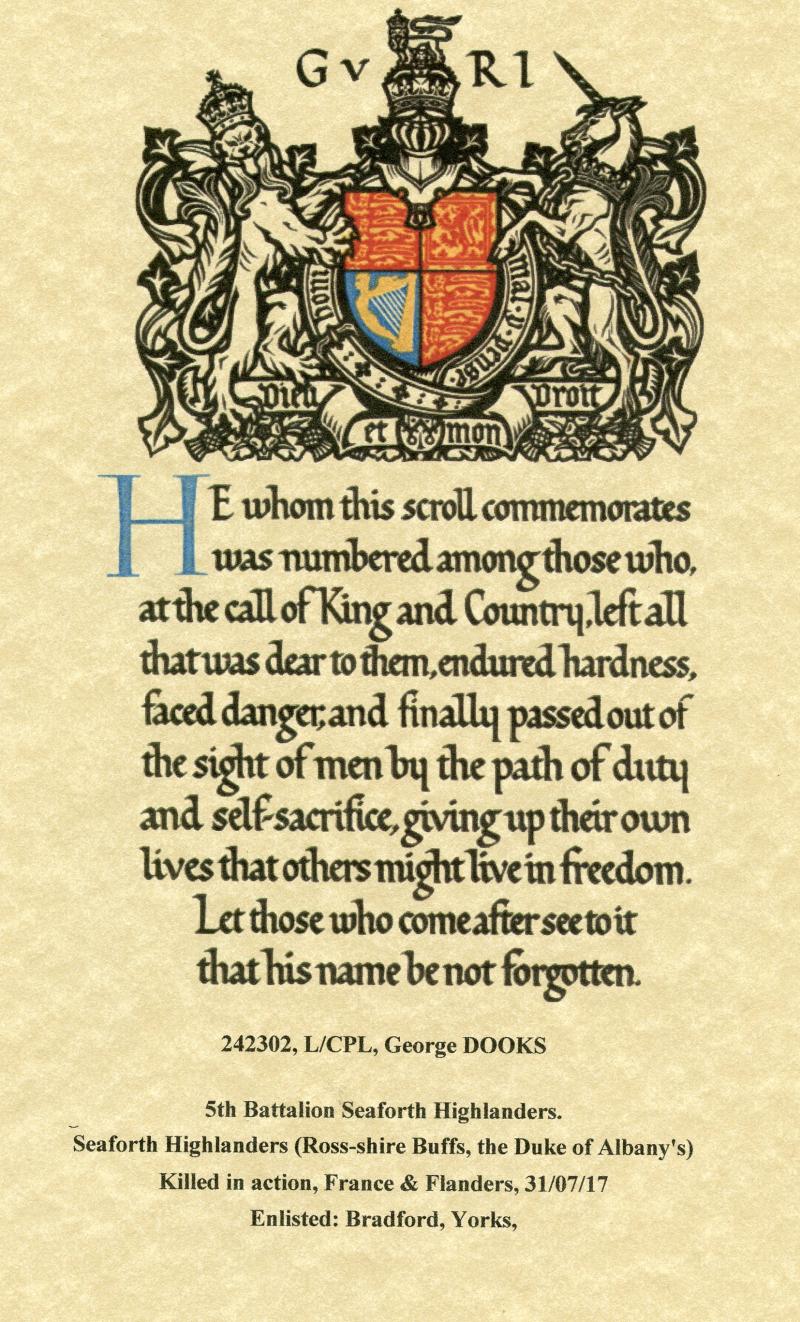 G V R I
honi
mal · y · pense
Dieu
Droit
et mon
HE whom this scroll commemorates
was numbered among those who,
at the call of King and Country, left all
that was dear to them, endured hardness,
faced danger, and finally passed out of
the sight of men by the path of duty
and self-sacrifice, giving up their own
lives that others might live in freedom.
Let those who come after see to it
that his name be not forgotten.
242302, L/CPL, George DOOKS
5th Battalion Seaforth Highlanders.
Seaforth Highlanders (Ross-shire Buffs, the Duke of Albany's)
Killed in action, France & Flanders, 31/07/17
Enlisted: Bradford, Yorks,